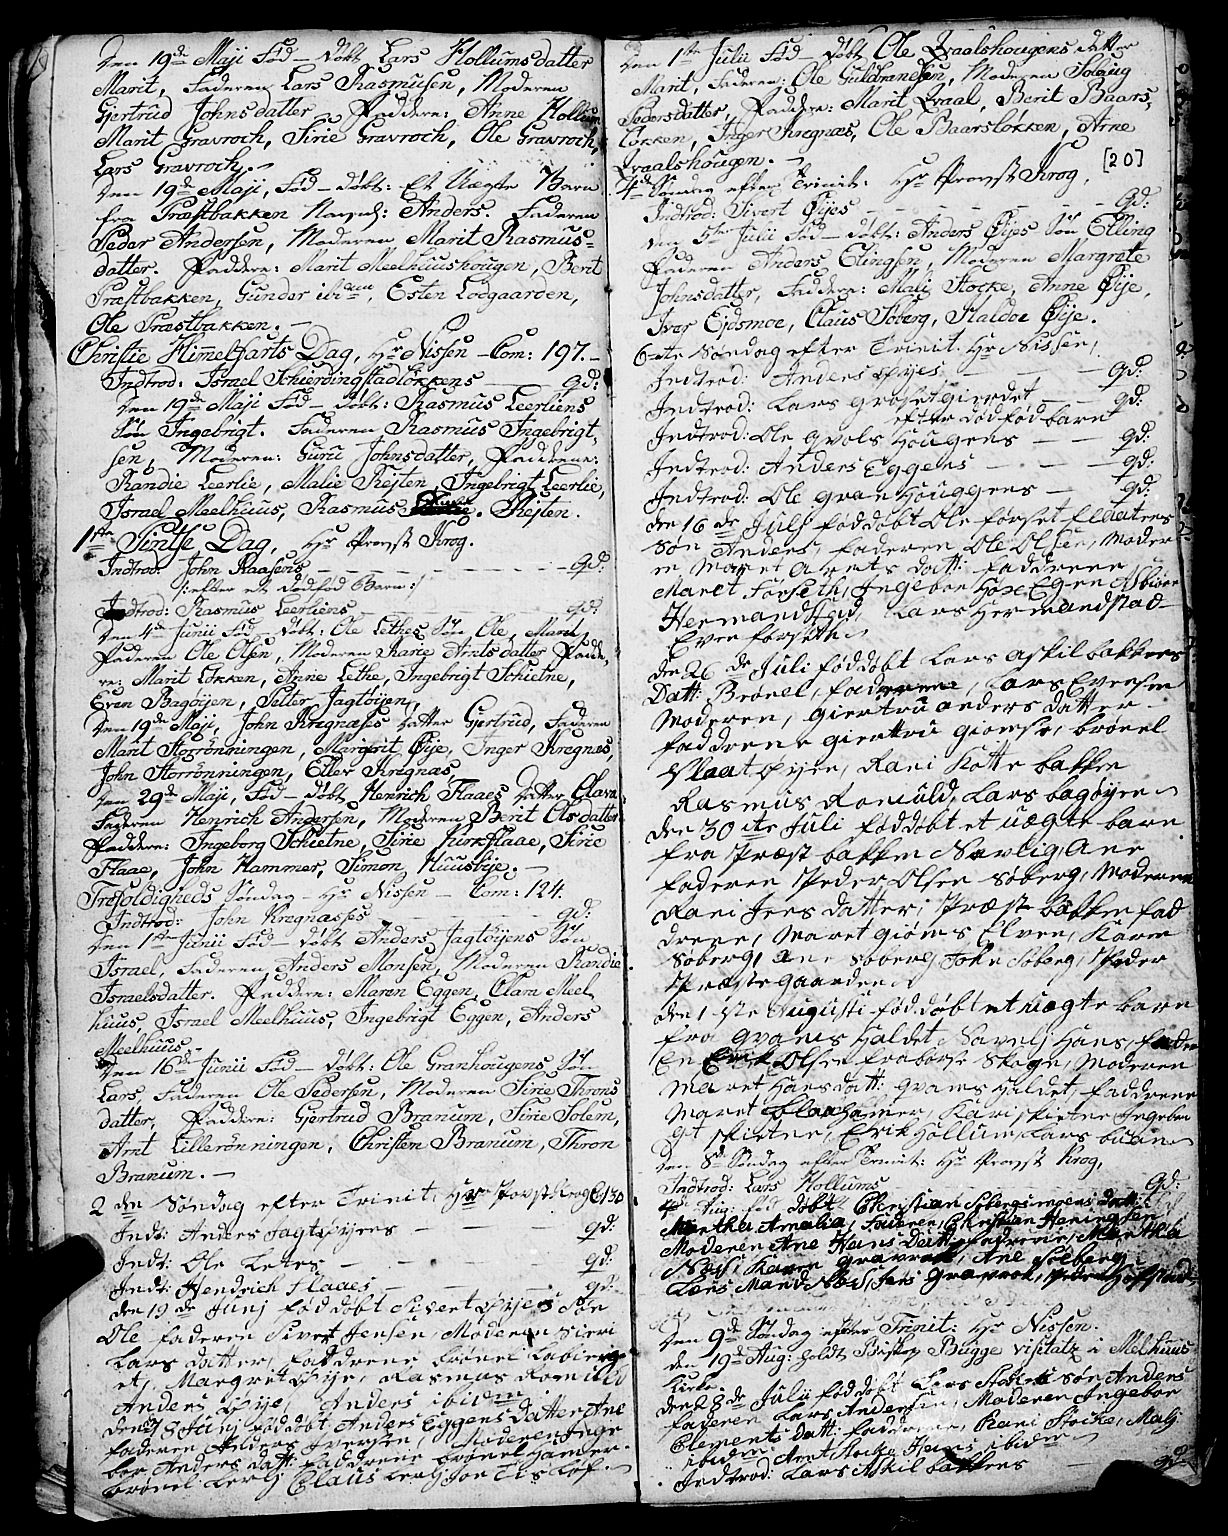 den 19de Maji Fød – døbt Lars Hollums datter
Marit, Faderen Lars Rasmusen, Moderen
Gertrud Johnsdatter Faddere: Anne Hollum
Marit Gravroch, Sirie Gravroch, Ole Gravroch,
Lars Gravroch. –
den 19de Maji, Fød – døbt: Et Uægte Barn
fra Præstbakken Anders. Faderen
Peder Andersen, Moderen Marit Rasmus-
datter. Faddere: Marit Meelhuushougen, Berit
Præstbakken, Gunder ibidem, Esten Lodgaarden,
Ole Præstbakken. –
Christie Himelfarts Dag, Hr Nissen – Com: 197. –
Indtrod: Israel Schierdingstadløkkens – gd:
den 19de Maji Fød – døbt: Rasmus Leerliens
Søn Ingebrigt. Faderen Rasmus Ingebrigt,
sen, Moderen: Guru Johnsdatter, Faddrene:
Randie Leerlie, Malie Rejten, Ingebrigt Leerlie,
Israel Meelhuus, Rasmus Rejten.
1ste Pintse Dag, Hr Provst Krog.
Indtrod: John Kaasens – – – gd:
/: efter et dødfød Barn :/
Indtrod: Rasmus Leerliens – – – gd:
den 4de Junii Fød – døbt: Ole Lethes Søn Ole,
Faderen Ole Olsen, Moderen Karie Arntsdatter Fadde-
re: Marit Løkken, Anne Lethe, Ingebrigt Schietne,
Even Bagøyen, Petter Jagtøyen,
den 19de Maji, John Kregnæses datter Gertrud, Faderen
Marit Storrønningen, Margrit Øije, Inger Kregnæs,
John Storrønningen, Eller Kregnæs,
den 29de Maji, Fød – døbt Henrich Flaaes datter Clara
Faderen Henrich Andersen, Moderen Berit Olsdatter
Faddere: Ingeborg Schietne, Sirie Kirkflaae, Sirie
Flaae, John Hammer, Simon Huusbye. –
Trefoldigheds Søndag – Hr Nissen – Com: 124.
Indtrod: John Kregnæsses – gd:
den 1ste Junii Fød – døbt Anders Jagtøyens Søn
Israel, Faderen Anders Monsen, Moderen Randie
Israelsdatter. Faddere: Maren Eggen, Olam Meel,
huus, Israel Meelhuus, Ingebrigt Eggen, Anders
Meelhuus –
den 16de Junii Fød – døbt: Ole Granhougens Søn
Lars, Faderen Ole Pedersen, Moderen Sirie Throns
datter, Faddere: Gertrud Branum, Sirie Solem,
Arnt Lillerønningen, Christen Branum, Thron
Branum. –
2 den Søndag efter Trinit: Hr Provst Krog C 130
Ind: Anders Jagtøyens – – – gd:
Indt: Ole Letes – – – gd:
Indt: Hendrich Flaaes – – – gd:
den 19de Junj fød døbt Sivert Øyens Søn
Ole faderen Sivert Jensen, Moderen Sieri
Lars datter, faddrene brønel
et, Margret Øye, Rasmus Romuld
Anders Øye, Anders ibidem
den 28 Junj fød døbt Anders Eggens Datter Ane
faderen Anders Iversen, Moderen Inge
bor Anders datt: faddrene brønel Hamer
brønel Lerlj Claus Lerlj
den 1ste Julii Fød – døbt Ole Qvaalshougens datter
Marit, Faderen: Ole Guldbrandsen, Moderen Solvug
Pedersdatter, Faddere: Marit Qvaal, Berit Baars-
løkken, Inger Kregnæs, Ole Baarsløkken, Arne
Qvaalshougen. –
[20]
4de Søndag efter Trinit: Hr Provst Krog.
Indtrod: Sivert Øijes – – – gd:
den 5te Julii Fød – døbt: Anders Øijes Søn Elling
Faderen Anders Elingsen, Moderen Margrete
Johnsdatter, Faddere: Malj Stocke, Anne Øije,
Iver Ejdsmoe, Claus Søberg, Haldoe Øije.
6te Søndag efter Trinit. Hr Nissen,
Indtrod: Anders Øyjes – – – gd:
Indtrod: Lars grøsetgierdet – – gd:
efter dødfød barn
Indtrod: Ole qvols Hougens – – gd:
Indtrod: Anders Eggens – – – gd:
Indtrod: Ole granHouggens – gd:
den 16de Julj fød døbt Ole førset
Søn Anders, faderen Ole Olsen, Moder
en Maret Arnts datt: faddrene
Maret Forseth, Ingebor Egen
Hermandstad, Lars Hermandstad
Even forseth
den 26de Juli fød døbt Lars askilbakkens
Datt: Brønel, faderene, Lars Evensen
Moderen, giertru anders datter
faddrene giertru giomse, brønel
Slaat Øyen, Rani Kotte bakken
Rasmus Romuld, Lars bagøyen
den 30ite Juli fød døbt et uægte barn
fra Præst bakken Navlig, Ane
faderen Peder Olsen Søberg, Moderen
Rani Jens datter, Præst bakken fad
drene, Maret giøms Elven, Karen
Søberg, ane Søberg John Søberg, Peder
Præstegaarden
den 1ste Augusti fød døbt et uægte barn
fra qvams Haldet Navlj Hans, fader
en Erik Olsen fra børse Skogn, Moderen
Maret Hansdatt: qvams Haldet, faddrene
Maret blaahamer, Kari Skietne Ingebri
gt Skietne, Erik Hollum, Lars
den 8de Søndag efter Trinit: Hr Provst Krog,
Indtrod: Lars Hollums – – – gd:
4de Aug: fød døbt Christian datt:
Martha Amalia, Faderen Christian Heningsen
Moderen Ane Hans Datt: faddrene, Martha
Næss, Karen Gravrok, Ane Søeberg
Lens Mand Næss, Jens Gravrok, Peder Hofstad
den 9de Søndag efter Trinit: Hr Nissen.
den 19de Aug: holdt Biskop Bugge visitatz i Melhuus
Kirke.
den 28de Julj fød døbt Lars Stokes søn Anders
faderen Lars Andersen, Moderen Ingebor
Clements datt: faddrene, Rani Stocke, Malj
ibidem Arnt Stocke Hans ibidem
Indtrod: Lars Askil bakkens – gd: